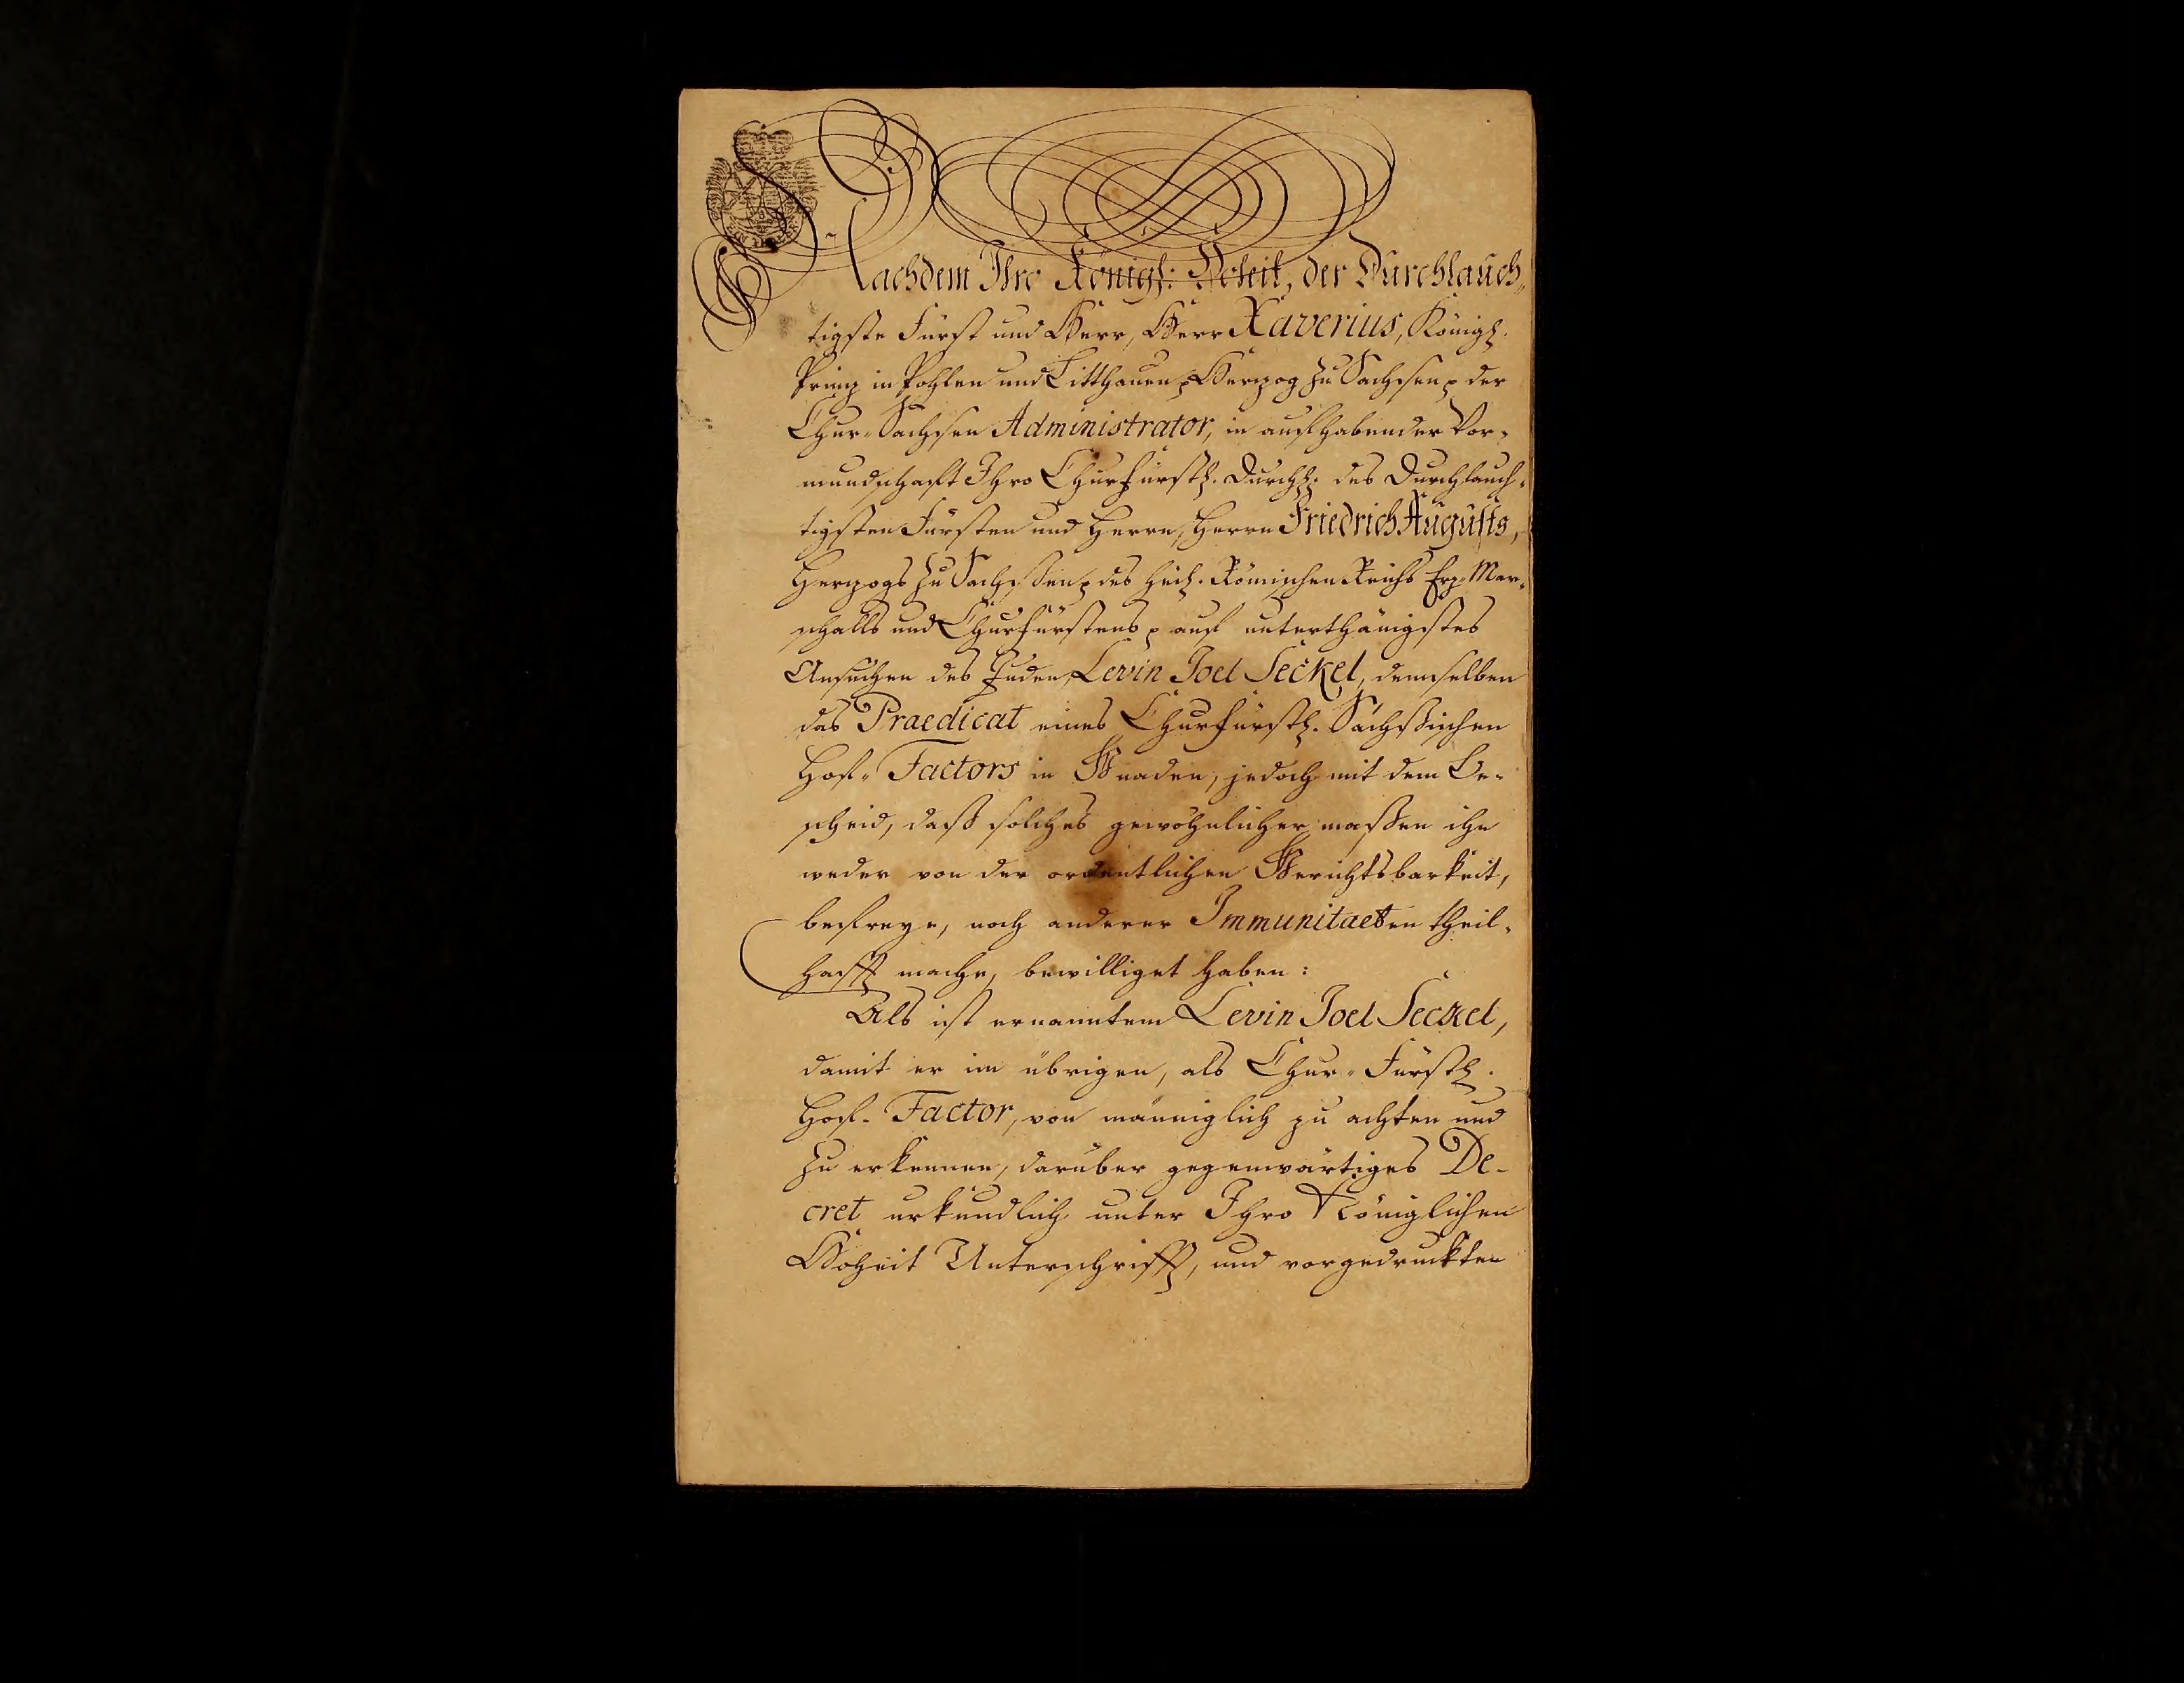 Nachdem Ihro Königl: Hoheit, der Durchlauch„
tigste Fürst und Herr, Herr Xaverius, Königl.
Prinz in Pohlen und Litthauen p Herzog zu Sachsen p der
Chur-Sachsen Administrator, in aufhabender Vor-
mundschaft Ihro Churfürstl. Durchl. des Durchlauch-
tigsten Fürsten und Herrn, Herrn Friedrich Augusts,
Herzogs zu Sachßen p des heil. Römischen Reichs Erz-Mar-
schalls und Churfürstens p auf unterthänigstes
Ansuchen des Juden, Levin Joel Seckel, demselben
das Praedicat eines Churfürstl. Sächßischen
Hof- Factors in Gnaden, jedoch mit dem Be-
scheid, daß solches gewöhnlicher maßen ihn
weder von der ordentlichen Gerichtsbarkeit,
befreye, noch anderer Immunitaeten theil-
hafft mache, bewilliget haben:
Als ist ernanntem Levin Joel Seckel,
damit er im übrigen, als Chur-Fürstl.
Hof- Factor, von männiglich zu achten und
zu erkennen, darüber gegenwärtiges De-
cret urkundlich unter Ihro Königlichen
Hoheit Unterschrifft, und vorgedruckten